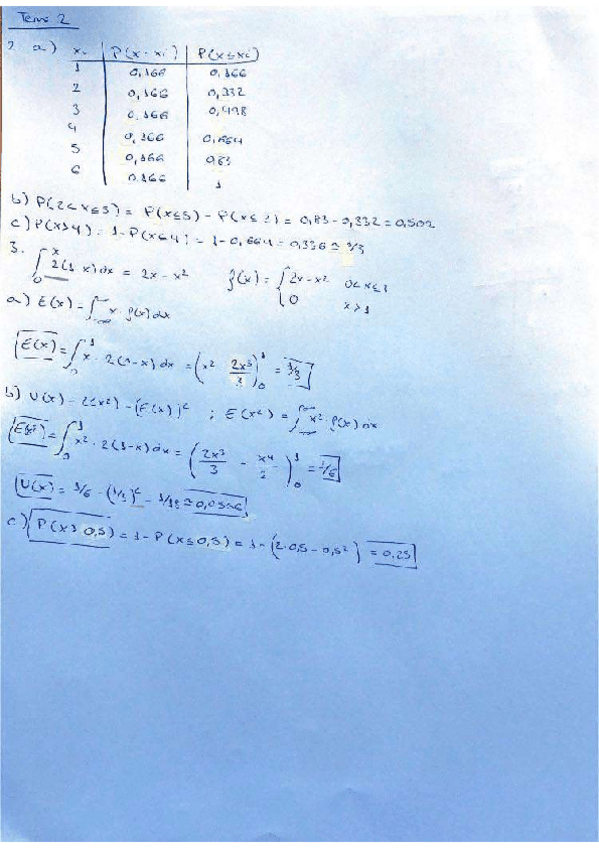 Tema 2
2 a) xi P(x=xi) P(x≤xi)
1 0,166 0,166
2 0,166 0,332
3 0,166 0,498
4 0,166 0,664
5 0,166 0,83
6 0.166 1
b) P(2<x≤5) = P(x≤5) - P(x≤2) = 0,83 - 0,332 = 0,502
c) P(x>4) = 1-P(x≤4) = 1-0,664 = 0,336 ≃ 1/3
3. ∫₀ˣ 2(1-x)dx = 2x - x² f(x) = { 2x-x² 0<x≤1
0 x>1
a) E(x) = ∫ x · f(x)dx
E(x) = ∫₀¹ x · 2(1-x)dx = (x² 2x³/3)₀¹ = 1/3
b) V(x) = E(x²) - (E(x))² ; E(x²) = ∫ x² · f(x)dx
E(x²) = ∫₀¹ x² · 2(1-x)dx = (2x³/3 - x⁴/2)₀¹ = 1/6
V(x) = 1/6 - (1/3)² = 1/18 ≃ 0,0556
c) P(x>0,5) = 1 - P(x≤0,5) = 1 - (2·0,5 - 0,5²) = 0,25